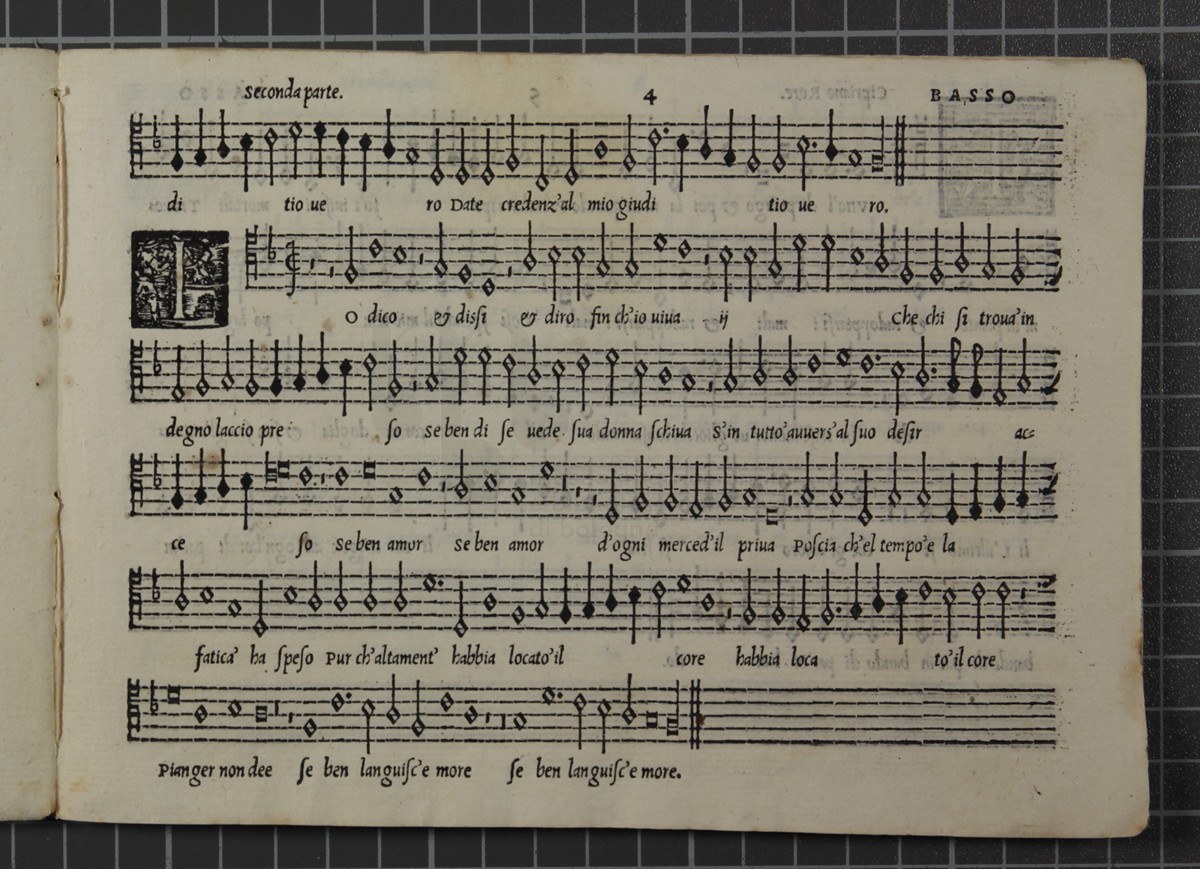 Seconda parte. 4 BASSO
di tio ue ro Date credenz'al mio giudi tio ue ro.
I O dico & dissi & diro fin ch'io uiua ij Che chi si troua'in
degno laccio pre so se ben di se uede sua donna schiua S'in tutto'auuers'al suo desir ac=
ce so se ben amor se ben amor d'ogni merced'il priua Poscia ch'el tempo'e la
fatica' ha speso Pur ch'altament' habbia locato'il core habbia loca to'il core
Pianger non dee se ben languisc'e more se ben languisc'e more.